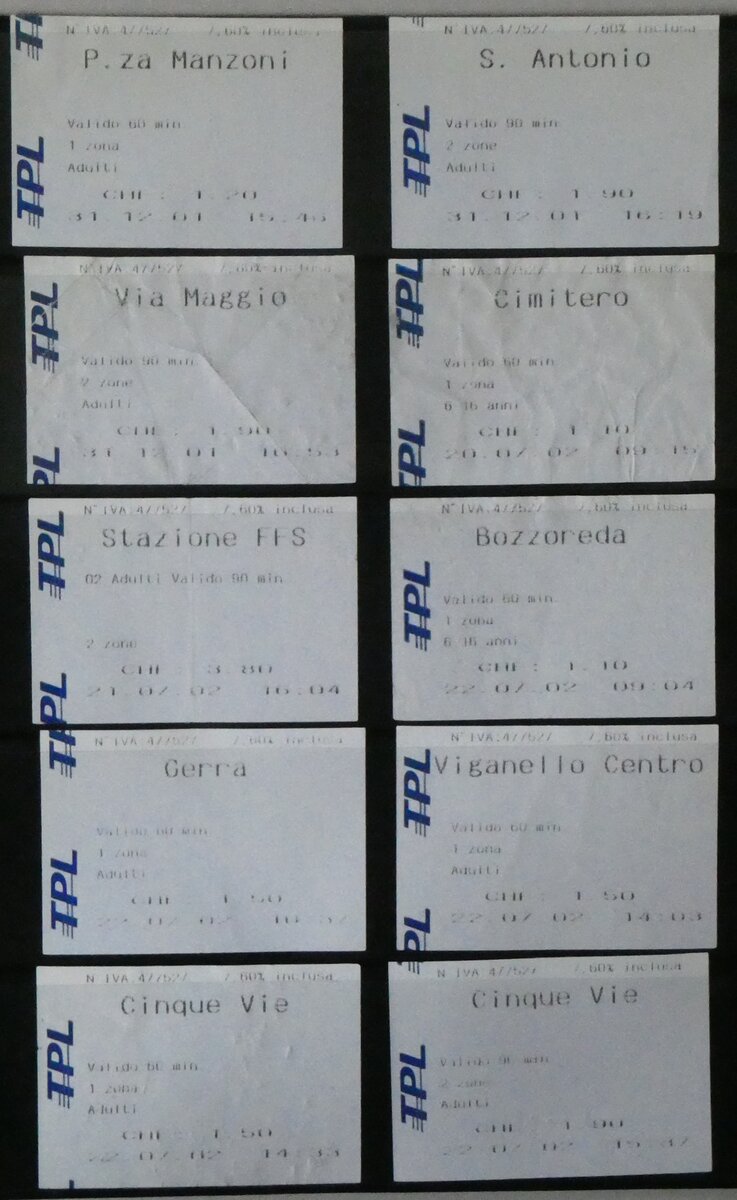 N°IVA:477527 7,60% inclusa
P.za Manzoni
Valido 60 min
1 zona
Adulti
CHF : 1.20
31.12.01 15:43
TPL
TPL
N°IVA:477527 7,60% inclusa
S. Antonio
Valido 90 min
2 zone
Adulti
CHF : 1.90
31.12.01 16:19
TPL
N°IVA:477527 7,60% inclusa
Via Maggio
Valido 90 min
2 zone
Adulti
CHF : 1.90
31.12.01 16:53
TPL
TPL
N°IVA:477527 7,60% inclusa
Cimitero
Valido 60 min
1 zona
6-16 anni
CHF : 1.10
20.07.02 09:15
TPL
TPL
N°IVA:477527 7,60% inclusa
Stazione FFS
02 Adulti Valido 90 min
2 zone
CHF : 3.80
21.07.02 16:04
TPL
TPL
N°IVA:477527 7,60% inclusa
Bozzoreda
Valido 60 min
1 zona
6-16 anni
CHF : 1.10
22.07.02 09:04
TPL
N°IVA:477527 7,60% inclusa
Gerra
Valido 60 min
1 zona
Adulti
CHF 1.50
22.07.02 10:37
TPL
TPL
N°IVA:477527 7,60% inclusa
Viganello Centro
Valido 60 min
1 zona
Adulti
CHF : 1.50
22.07.02 14:03
TPL
TPL
N°IVA:477527 7,60% inclusa
Cinque Vie
Valido 60 min
1 zona
Adulti
CHF : 1.50
22.07.02 14:33
TPL
N°IVA:477527 7,60% inclusa
Cinque Vie
Valido 90 min
2 zone
Adulti
CHF : 1.90
22.07.02 15:47
TPL